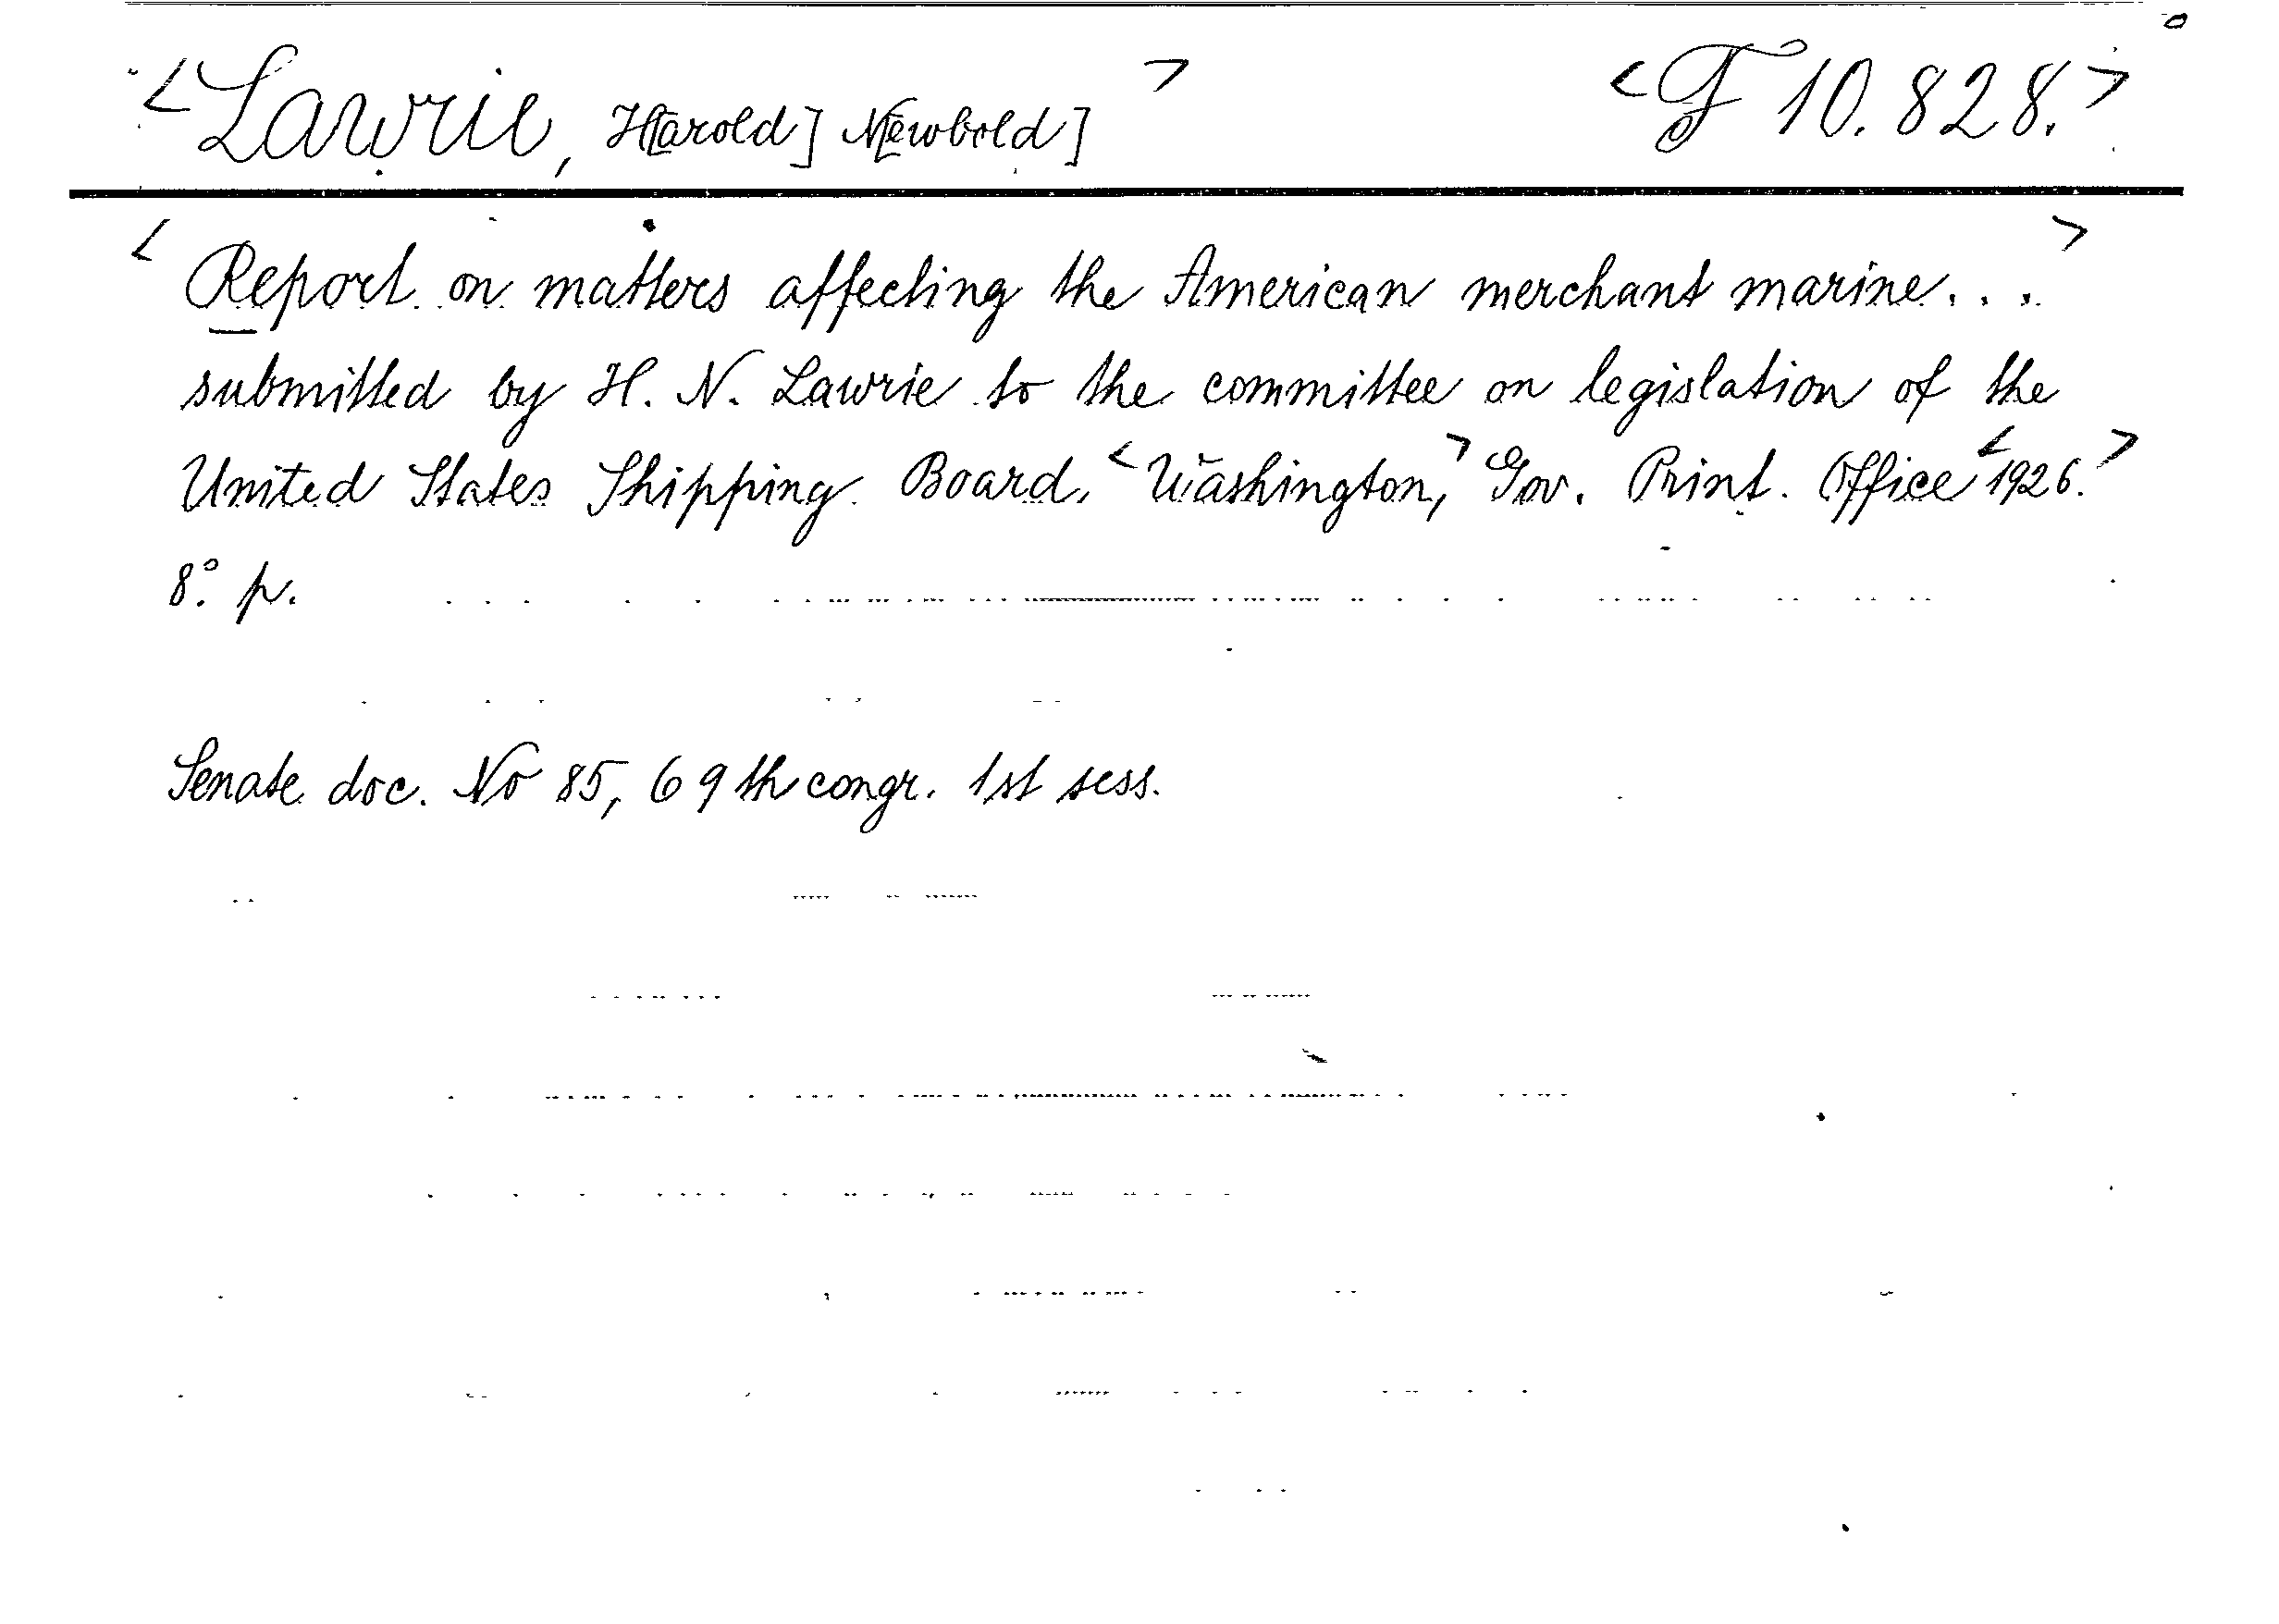 <Lawrie, H[arold] N[ewbold]> <F 10.828.>
<Report on matters affecting the American merchant marine...>
submitted by H. N. Lawrie to the committee on legislation of the
United States Shipping Board. <Washington,> Gov. Print. Office <1926.>
8.° p.
Senate doc. No 85, 69th congr. 1st sess.